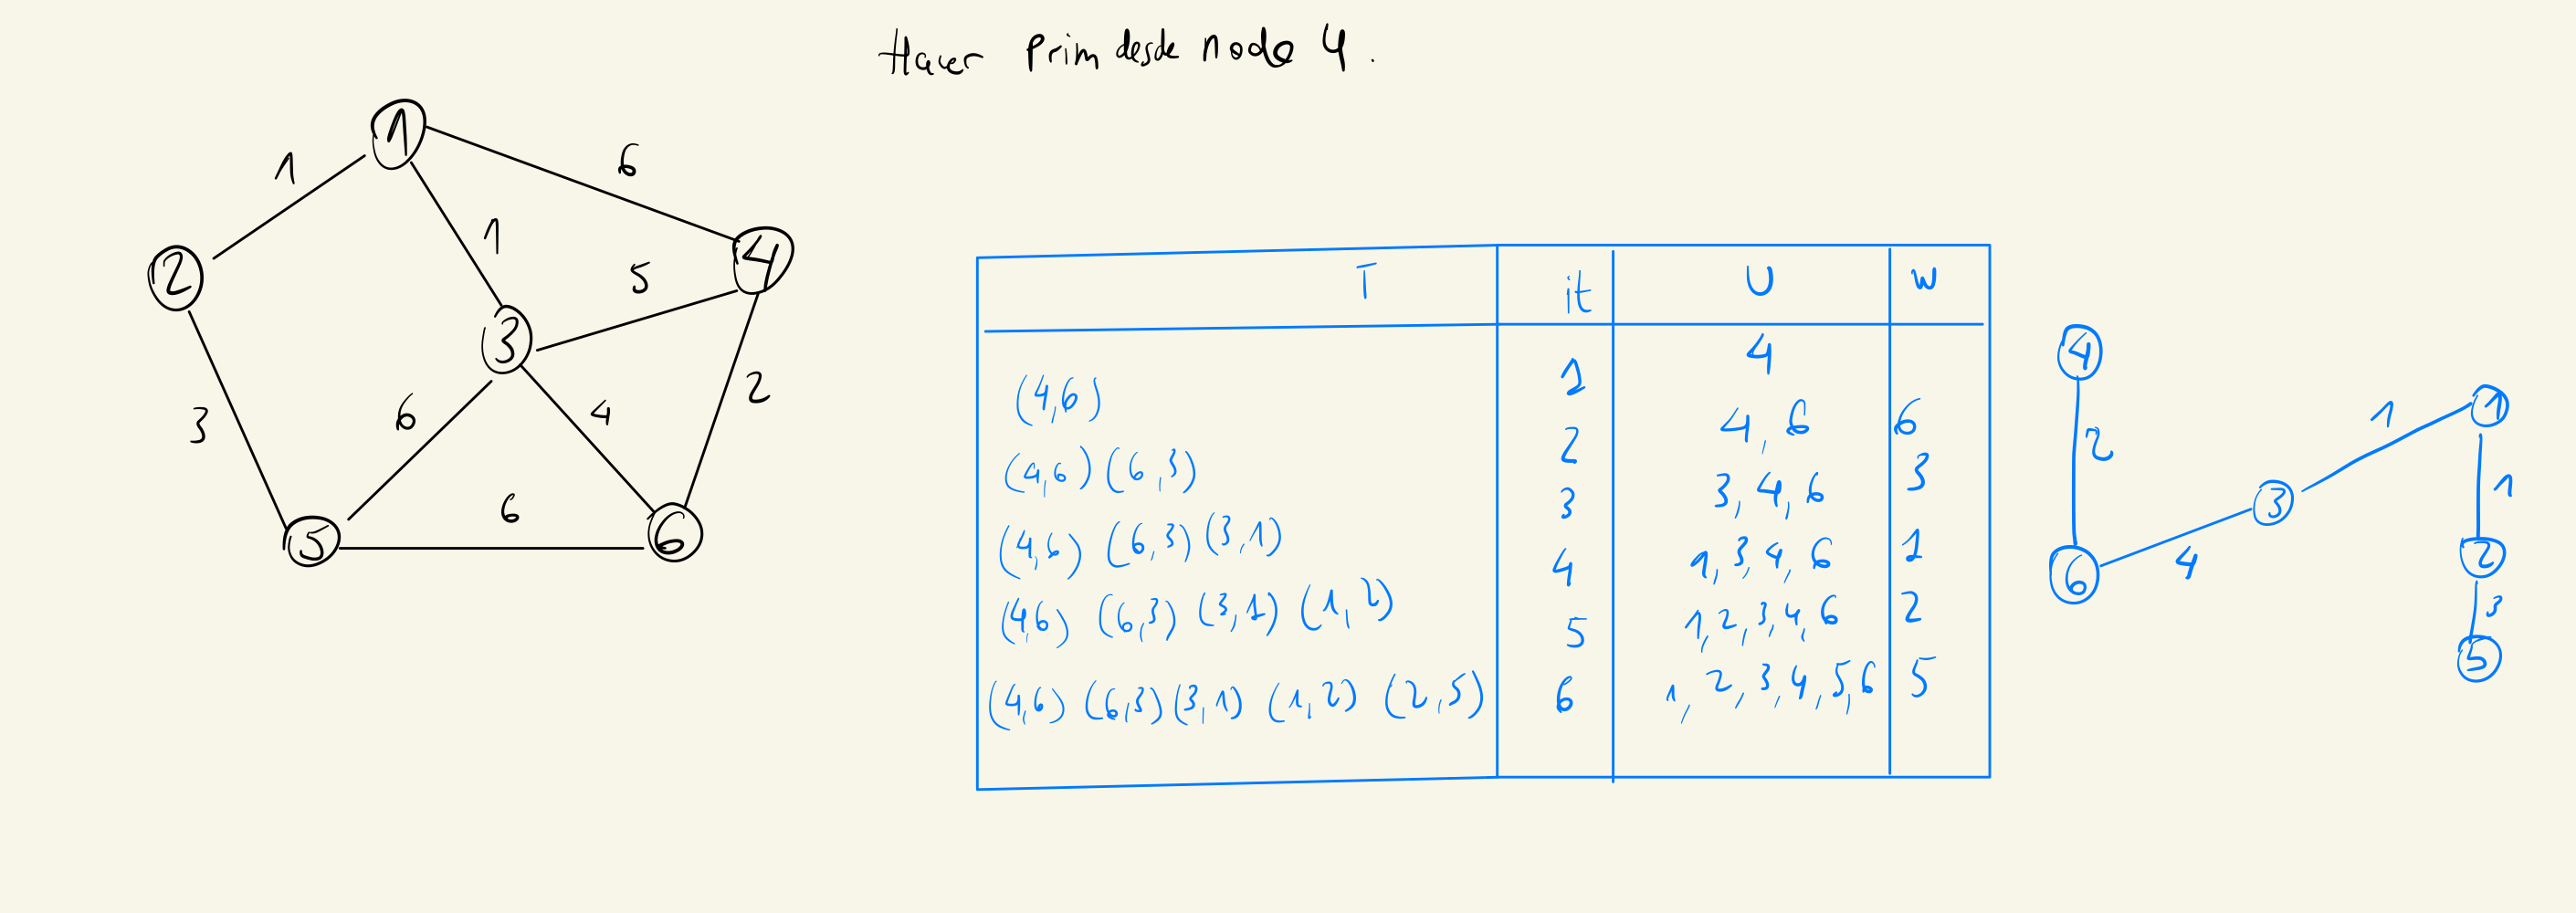 Hacer Prim desde nodo 4.
1
6
1
1
2
5
4
3
3
6
4
2
6
5
6
T it U w
1 4
(4,6)
2 4, 6 6
(4,6) (6,3)
3 3, 4, 6 3
(4,6) (6,3) (3,1)
4 1, 3, 4, 6 1
(4,6) (6,3) (3,1) (1,2)
5 1, 2, 3, 4, 6 2
(4,6) (6,3) (3,1) (1,2) (2,5)
6 1, 2, 3, 4, 5, 6 5
4
1
1
2
3
1
6
4
2
3
5